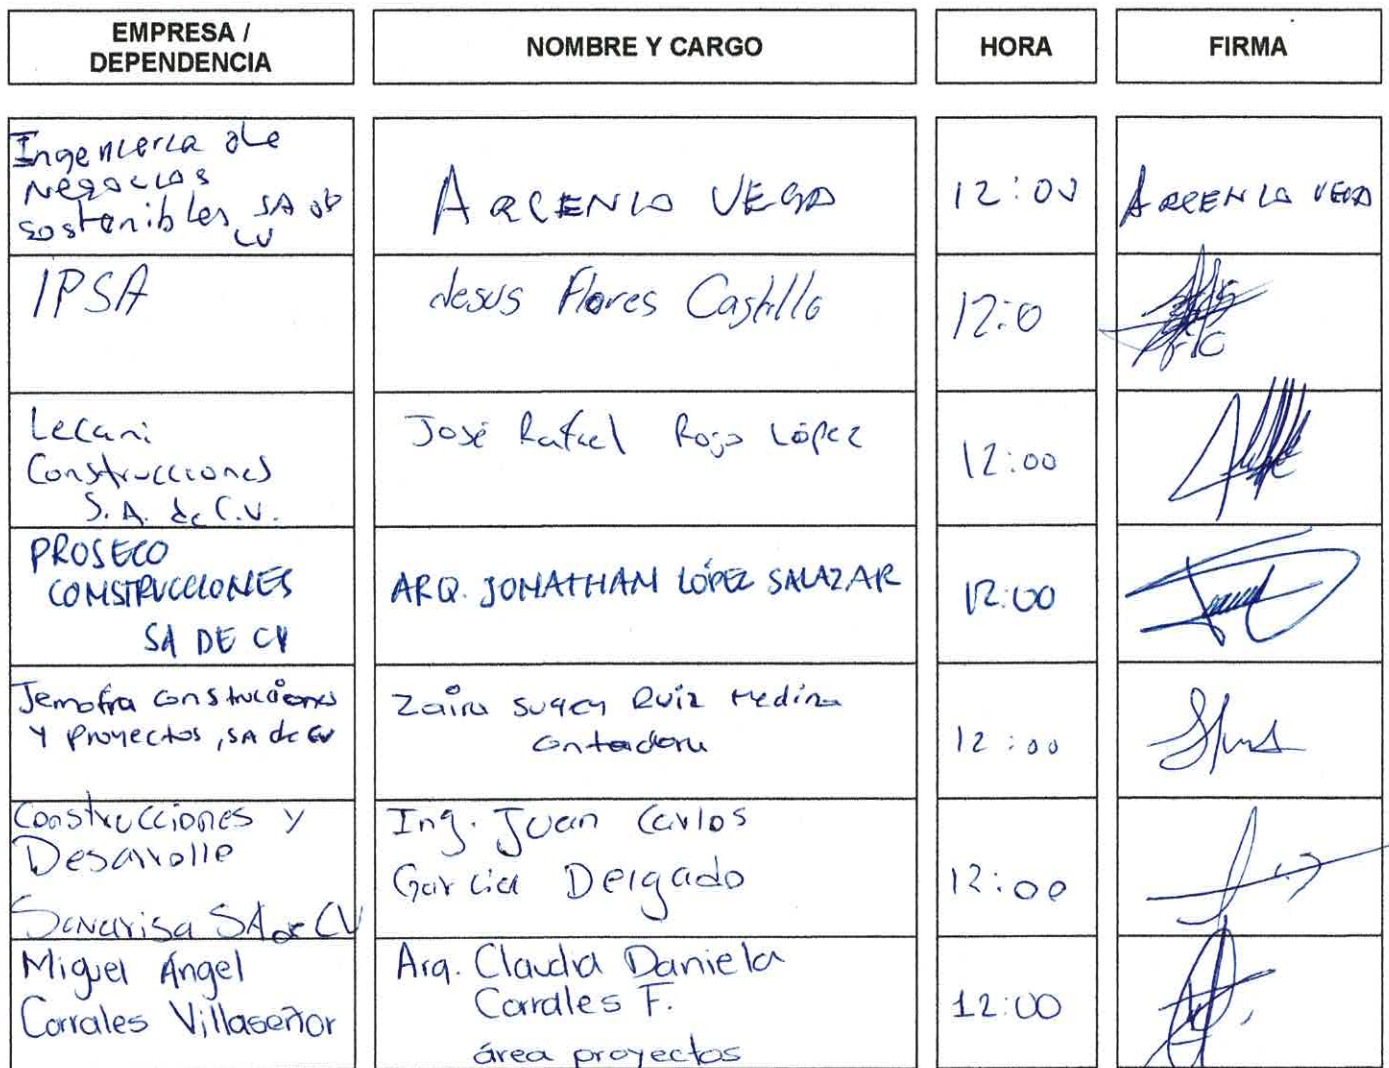 EMPRESA /
DEPENDENCIA
NOMBRE Y CARGO
HORA
FIRMA
Ingenieria de
Negocios
sostenibles SA de
CV
ARCENIO VEGA
12:00
ARCENIO VEGA
IPSA
Jesus Flores Castillo
12:0
Lecani
Construcciones
S.A. de C.V.
José Rafael Rojo López
12:00
PROSECO
CONSTRUCCIONES
SA DE CV
ARQ. JONATHAN LÓPEZ SALAZAR
12:00
Jemofra Construcciones
y Proyectos, SA de CV
Zaira Sugey Ruiz Medina
Contadora
12:00
Construcciones y
Desarrollo
SA de CV
Ing. Juan Carlos
Garcia Delgado
12:00
Miguel Ángel
Corrales Villaseñor
Arq. Claudia Daniela
Corrales F.
área proyectos
12:00